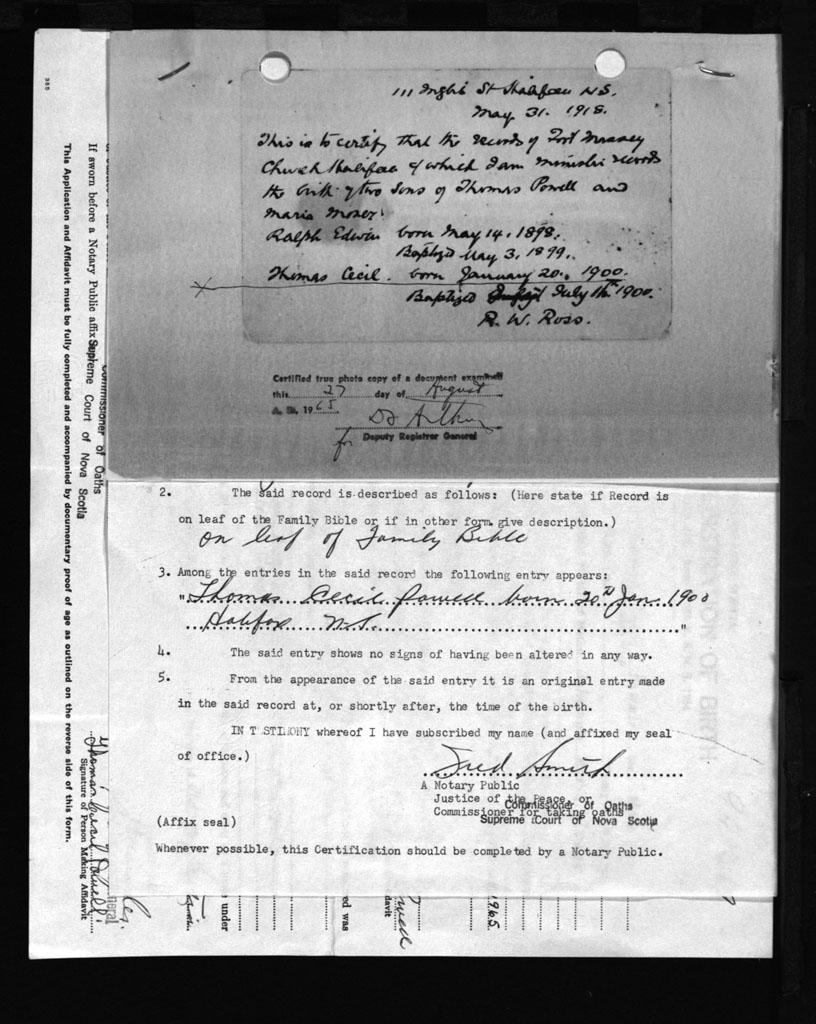 111 Inglis St Halifax N.S.
May 31. 1918.
This is to certify that the records of Fort Massey
Church Halifax of which I am minister records
the birth of two sons of Thomas Powell and
Maria Moser:
Ralph Edwin born May 14. 1898.
Baptized May 3, 1899.
Thomas Cecil. born January 20. 1900.
Baptized July 11th 1900.
R. W. Ross.
Certified true photo copy of a document examined
this 27 day of August
A. D. 1965
for Deputy Registrar General
2. The said record is described as follows: (Here state if Record is
on leaf of the Family Bible or if in other form give description.)
on leaf of Family Bible
3. Among the entries in the said record the following entry appears:
"Thomas Cecil Powell born 20th Jan 1900
Halifax N.S. "
4. The said entry shows no signs of having been altered in any way.
5. From the appearance of the said entry it is an original entry made
in the said record at, or shortly after, the time of the birth.
IN TESTIMONY whereof I have subscribed my name (and affixed my seal
of office.)
Fred Smith
A Notary Public
Justice of the Peace, or
Commissioner for taking oaths
Commissioner of Oaths
Supreme Court of Nova Scotia
(Affix seal)
Whenever possible, this Certification should be completed by a Notary Public.
385
This Application and Affidavit must be fully completed and accompanied by documentary proof of age as outlined on the reverse side of this form.
If sworn before a Notary Public affix
Supreme Court of Nova Scotia
Commissioner of Oaths
Thomas Cecil Powell
Signature of Person Making Affidavit
under
ed was
davit
1965